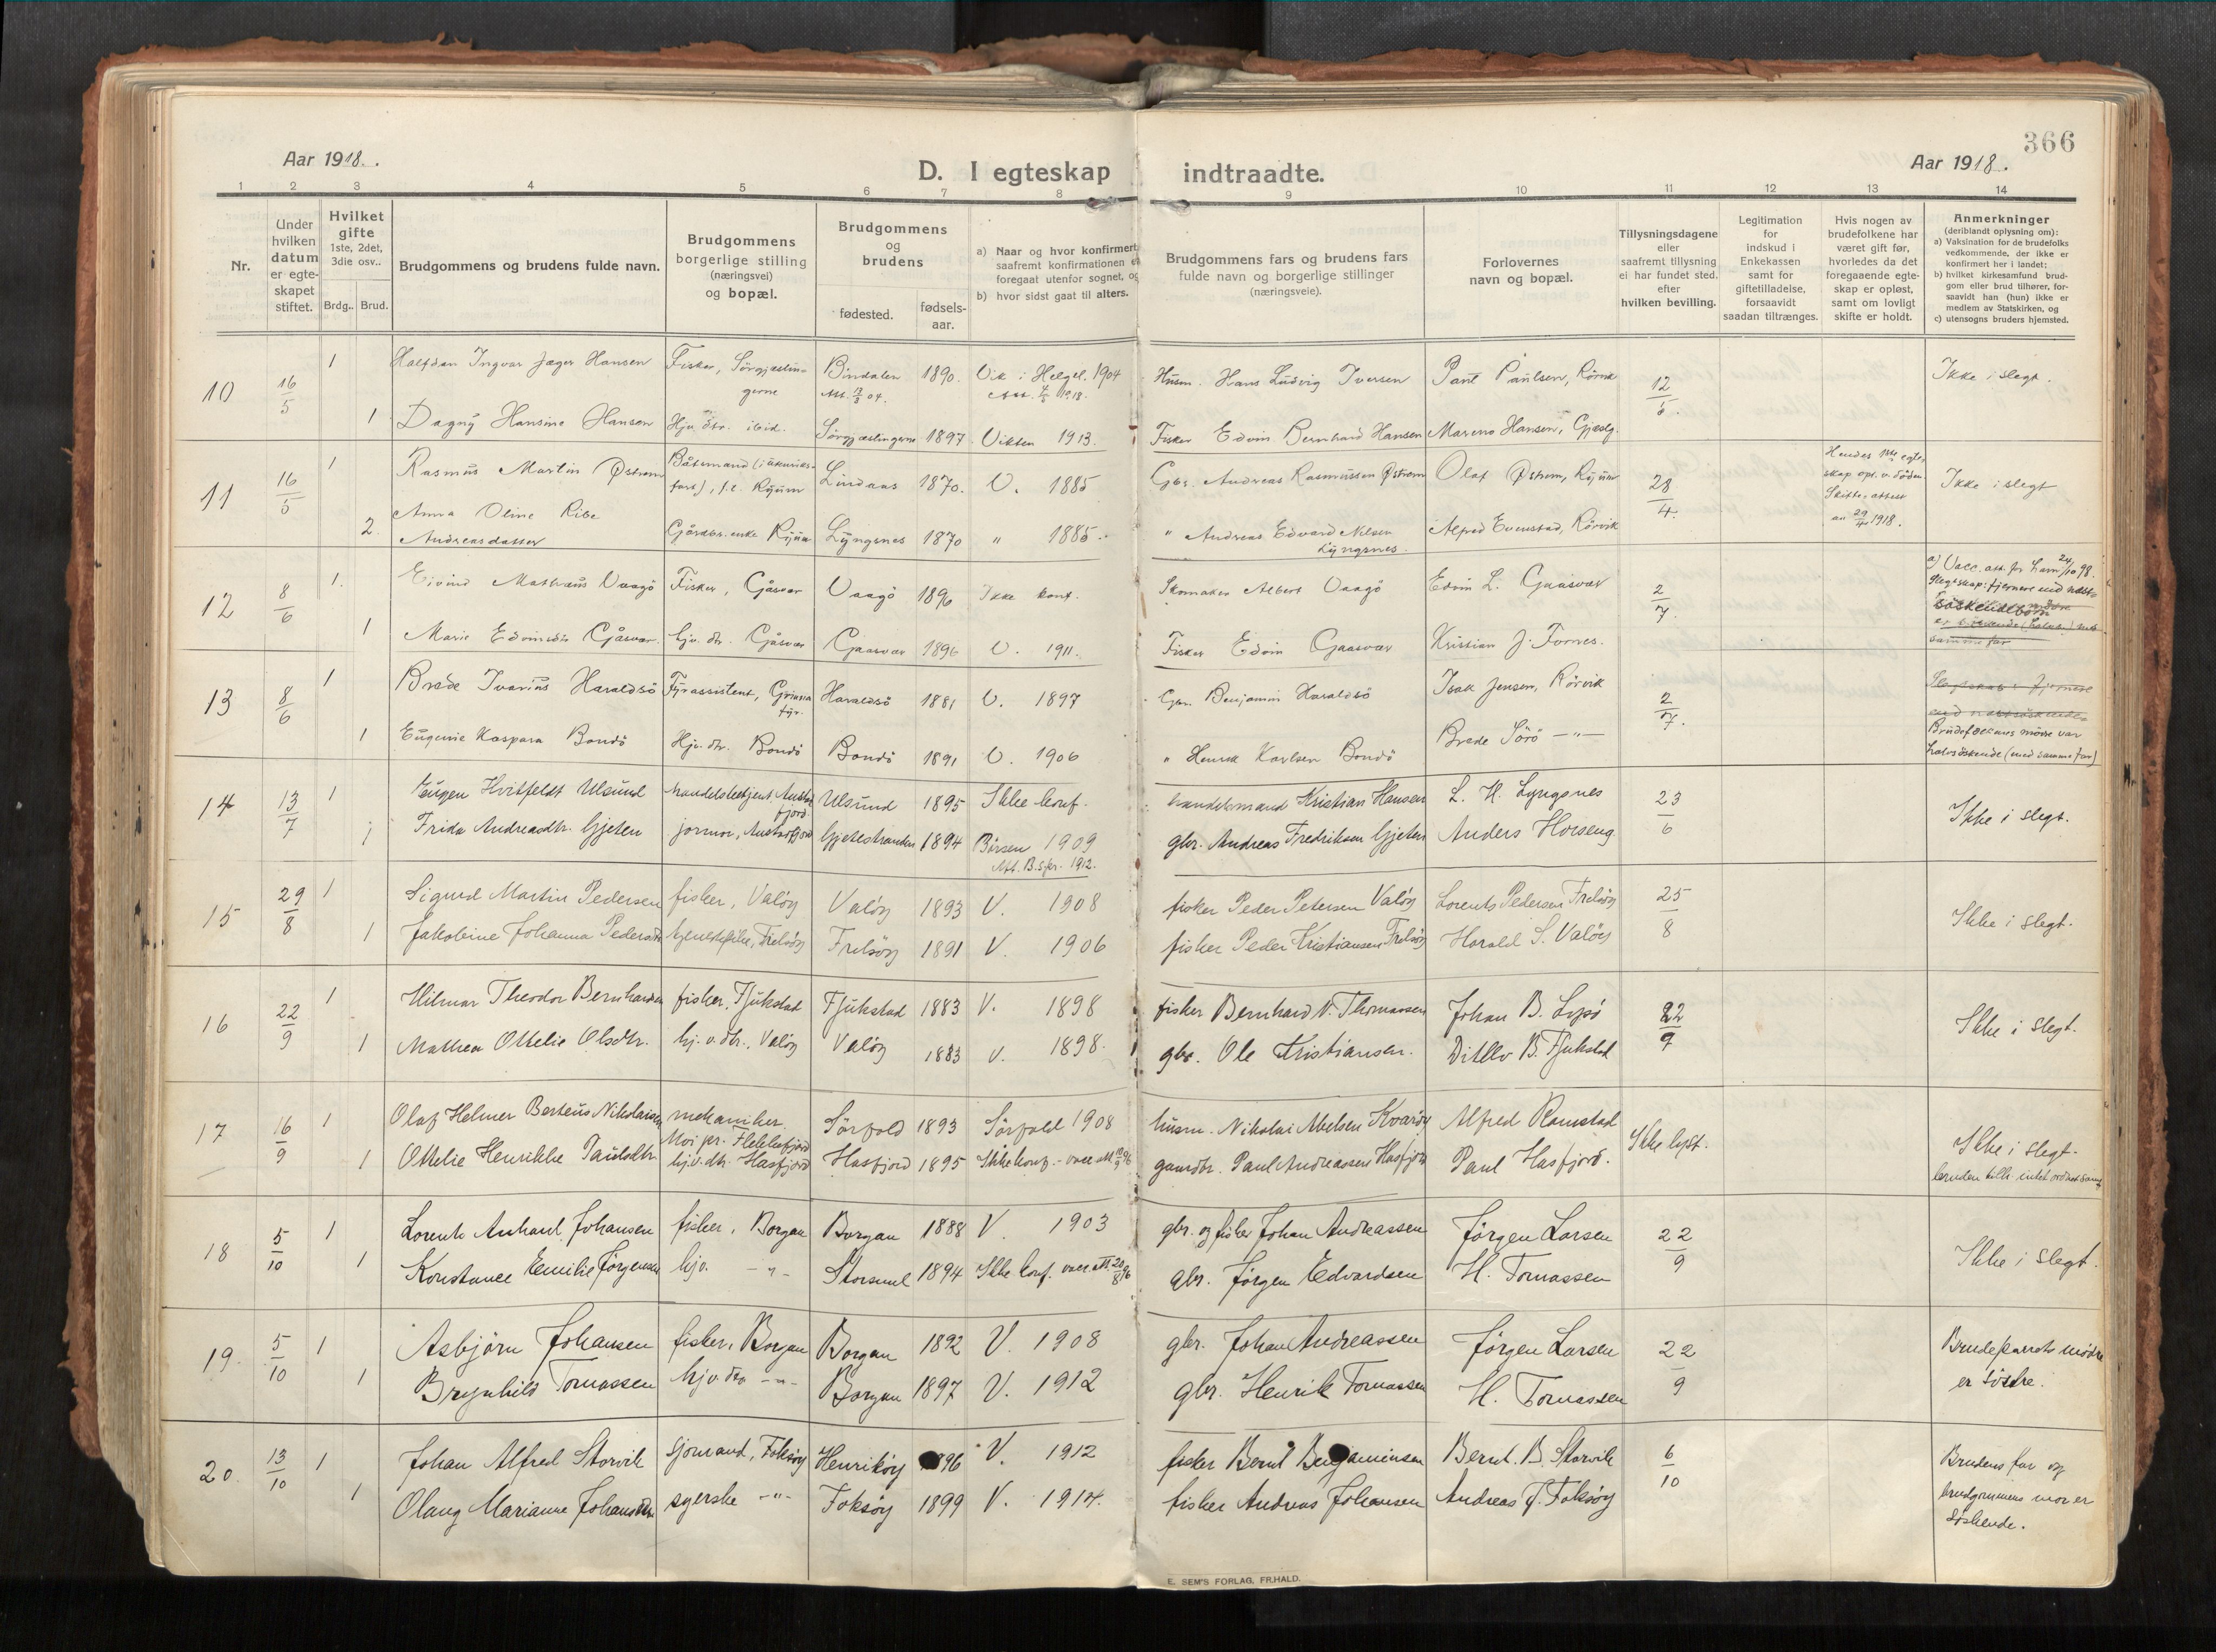 366
Aar 1918.
Aar 1918.
D. I egteskap indtraadte.
1 2 3 4 5 6 7 8 9 10 11 12 13 14
Nr.
Under hvilken datum er egte-skapet stiftet.
Hvilket gifte 1ste, 2det, 3die osv..
Brdg.. Brud.
Brudgommens og brudens fulde navn.
Brudgommens borgerlige stilling (næringsvei) og bopæl.
Brudgommens og brudens
fødested. fødsels-aar.
a) Naar og hvor konfirmert
saafremt konfirmationen
foregaat utenfor sognet, og
b) hvor sidst gaat til alters.
Brudgommens fars og brudens fars
fulde navn og borgerlige stillinger
(næringsveie).
Forlovernes
navn og bopæl.
Tillysningsdagene
eller
saafremt tillysning
ei har fundet sted.
efter
hvilken bevilling.
Legitimation
for
indskud i
Enkekassen
samt for
giftetilladelse,
forsaavidt
saadan tiltrænges.
Hvis nogen av
brudefolkene har
været gift før,
hvorledes da det
foregaaende egte-
skap er opløst,
samt om lovligt
skifte er holdt.
Anmerkninger
(deriblandt oplysning om):
a) Vaksination for de brudefolks
vedkommende, der ikke er
konfirmert her i landet;
b) hvilket kirkesamfund brud-
gom eller brud tilhører, for-
saavidt han (hun) ikke er
medlem av Statskirken, og
c) utensogns bruders hjemsted.
10 16/5 1 Halfdan Ingvar Jæger Hansen Fisker, Sörgjæslin-gerne Bindalen 1890. Vik i Helgel. 1904 Husm. Hans Ludvig Iversen Paul Paulsen, Rörvik 12/5. Ikke i slegt.
1 Dagny Hansine Hansen Hjv. dtr. ibid. Sörgjæslingerne 1897 Vikten 1913. Fisker Edvin Bernhard Hansen Mareno Hansen, Gjæslg.
11 16/5 1 Rasmus Martin Østrem Lindaas 1870. V. 1885 Gbr. Andreas Rasmussen Østrem Olaf Østrem, Ryum 28/4. Hendes 1ste egte-skap opl. v. döden Skifte-attest av 29/4 1918. Ikke i slegt
2. Anna Oline Ribe Andreasdatter Gårdbr. enke Ryum Lyngsnes 1870 " 1885. " Andreas Edvard Nilsen Lyngsnes. Alfred Evenstad, Rörvik
12 8/6 1. Eivind Mathæus Vaagö Fisker, Gåsvær Vaagö 1896 Ikke konf. Skomaker Albert Vaagö Edvin L. Gaasvær 2/7. a) Vacc. att. for ham 24/10 98. Slegtskap: fjernere end næst-söskendebörn
1 Marie Edvinsdtr Gåsvær. hjv. dtr. Gåsvær Gaasvær 1896 V. 1911. Fisker Edvin Gaasvær Kristian J. Fornes.
13 8/6 1 Brede Ivarius Haraldsö Fyrassistent, Grinna fyr. Haraldsö 1881 V. 1897 Gbr. Benjamin Haraldsö Isak Jensen, Rörvik 2/7. Slegtskab: fjernere end næstsöskende
1 Eugenie Kaspara Bondö Hjv. dtr. Bondö Bondö 1891 V. 1906 " Henrik Karlsen Bondö Brede Sörö -"- Brudefolkenes mödre var halvsöskende (med samme far)
14 13/7 1 Eugen Hvitfeldt Ulsund handelsbetjent, Austrafjord. Ulsund 1895 Ikke konf. handelsmand Kristian Hansen L. H. Lyngsnes 23/6 Ikke i slegt.
1 Frida Andreasdtr. Gjeten jormor, Austrafjord Gjetestranden 1894 Börsen 1909 gbr. Andreas Fredriksen Gjeten Anders Horseng
15 29/8 1 Sigurd Martin Pedersen fisker, Valöy Valöy 1893 V. 1908 fisker Peder Petersen Valöy Lorents Pedersen Frelsöy 25/8 Ikke i slegt.
1 Jakobine Johanna Pedersdtr tjenestepike, Frelsöy Frelsöy 1891 V. 1906 fisker Peder Kristiansen Frelsöy Harald S. Valöy
16 22/9 1 Hilmar Theodor Bernhardsen fisker, Fjukstad Fjukstad 1883 V. 1898 fisker Bernhard N. Thomassen Johan B. Lysö 22/9 Ikke i slegt.
1 Mathea Ottelie Olsdtr. hj. v. dtr., Valöy Valöy 1883 V. 1898. gbr. Ole Kristiansen. Ditlev B. Fjukstad
17 16/9 1 Olaf Helmer Berteus Nikolaisen mekaniker. Moi pr. Flekkefjord Sörfold 1893 Sörfold 1908 husm. Nikolai Abelsen Kvaröy Alfred Ramstad Ikke lyst. Ikke i slegt.
1 Ottelie Henrikke Paulsdtr. hj.v. dtr. Hasfjord Hasfjord 1895 Ikke konf. - gaardbr. Paul Andreassen Hasfjord Paul Hasfjord.
18 5/10 1 Lorents Anhard Johansen fisker, Borgan Borgan 1888 V. 1903 gbr. og fisker Johan Andreassen Jörgen Larsen 22/9 Ikke i slegt.
1 Konstance Emilie Jörgensen hjv. -"- Storsund 1894 Ikke konf. vacc. att 22/8 96 gbr. Jörgen Edvardsen H. Tomassen
19. 5/10 1 Asbjörn Johansen fisker, Borgan Borgan 1892 V. 1908 gbr. Johan Andreassen Jörgen Larsen 22/9 Brudeparrets mödre er söstre.
1 Brynhild Tomassen hjv. dtr -"- Borgan 1897 V. 1912 gbr. Henrik Tomassen H. Tomassen
20. 13/10 1 Johan Alfred Storvik sjömand, Foksöy Henriköy 1896 V. 1912 fisker Bernt Benjaminsen Bernt. B. Storvik 6/10 Brudens far og brudgommens mor er söskende.
1 Olaug Marianne Johansdtr. syerske -"- Foksöy 1899 V. 1914. fisker Andreas Johansen Andreas J. Foksöy
E. SEM'S FORLAG, FR.HALD.